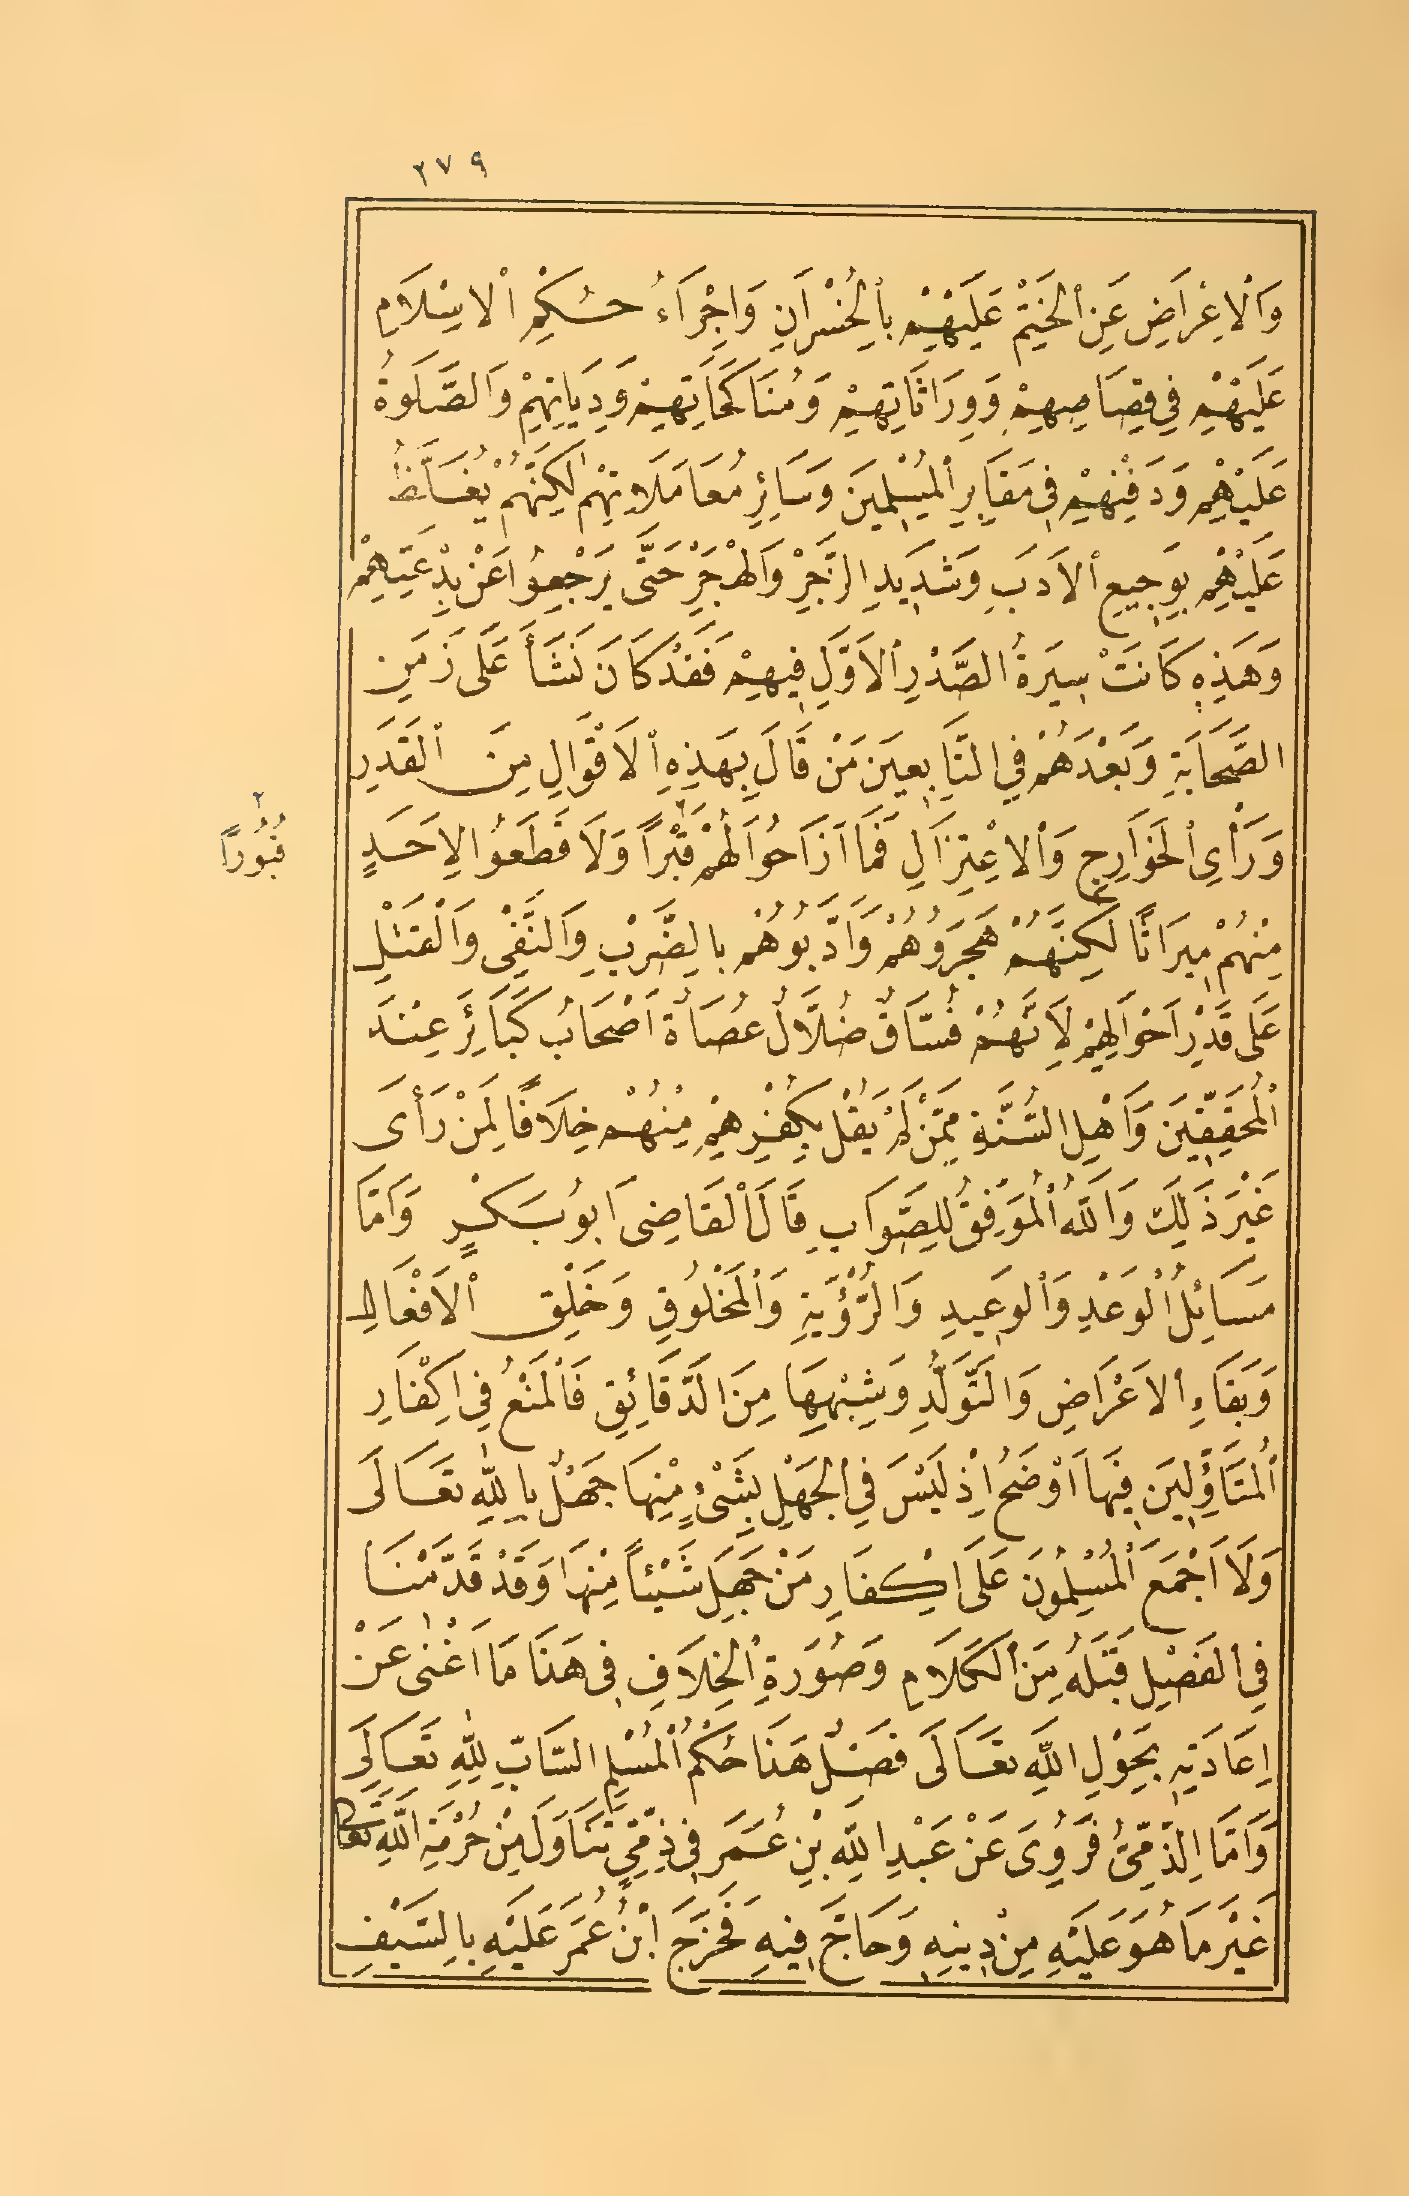 ٢٧٩
وَالْاِعْرَاضِ عَنِ الْحَتْمِ عَلَيْهِمْ بِالْخُسْرَانِ وَاِجْرَاءُ حُكْمِ الْاِسْلَامِ
عَلَيْهِمْ فِي قِصَاصِهِمْ وَوِرَاثَاتِهِمْ وَمُنَاكَحَاتِهِمْ وَدِيَاتِهِمْ وَالصَّلٰوةُ
عَلَيْهِمْ وَدَفْنِهِمْ فِي مَقَابِرِ الْمُسْلِمِينَ وَسَائِرِ مُعَامَلَاتِهِمْ لٰكِنَّهُمْ يُغَلَّظُ
عَلَيْهِمْ بِوَجِيعِ الْاَدَبِ وَشَدِيدِ الزَّجْرِ وَالْهَجْرِ حَتَّى يَرْجِعُوا عَنْ بِدْعَتِهِمْ
وَهَذِهِ كَانَتْ سِيرَةُ الصَّدْرِ الْاَوَّلِ فِيهِمْ فَقَدْ كَانَ نَشَأَ عَلَى زَمَنِ
الصَّحَابَةِ وَبَعْدَهُمْ فِي التَّابِعِينَ مَنْ قَالَ بِهَذِهِ الْاَقْوَالِ مِنَ الْقَدَرِ
وَرَأْيِ الْخَوَارِجِ وَالْاِعْتِزَالِ فَمَا اَزَاحُوا لَهُمْ قَبْرًا وَلَا قَطَعُوا لِاَحَدٍ
٢
قُبُورًا
مِنْهُمْ مِيرَاثًا لَكِنَّهُمْ هَجَرُوهُمْ وَاَدَّبُوهُمْ بِالضَّرْبِ وَالنَّفْيِ وَالْقَتْلِ
عَلَى قَدْرِ اَحْوَالِهِمْ لِاَنَّهُمْ فُسَّاقٌ ضُلَّالٌ عُصَاةٌ اَصْحَابُ كَبَائِرَ عِنْدَ
الْمُحَقِّقِينَ وَاَهْلِ السُّنَّةِ مِمَّنْ لَمْ يَقُلْ بِكُفْرِهِمْ مِنْهُمْ خِلَافًا لِمَنْ رَأَى
غَيْرَ ذَلِكَ وَاللهُ الْمُوَفِّقُ لِلصَّوَابِ قَالَ الْقَاضِى اَبُو بَكْرٍ وَاَمَّا
مَسَائِلُ الْوَعْدِ وَالْوَعِيدِ وَالرُّؤْيَةِ وَالْمَخْلُوقِ وَخَلْقِ الْاَفْعَالِ
وَبَقَاءِ الْاَعْرَاضِ وَالتَّوَلُّدِ وَشِبْهِهَا مِنَ الدَّقَائِقِ فَالْمَنْعُ فِي اِكْفَارِ
الْمُتَأَوِّلِينَ فِيهَا اَوْضَحُ اِذْ لَيْسَ فِي الْجَهْلِ بِشَيْءٍ مِنْهَا جَهْلٌ بِاللهِ تَعَالَى
وَلَا اَجْمَعَ الْمُسْلِمُونَ عَلَى اِكْفَارِ مَنْ جَهِلَ شَيْئًا مِنْهَا وَقَدْ قَدَّمْنَا
فِي الْفَصْلِ قَبْلَهُ مِنَ الْكَلَامِ وَصُورَةِ الْخِلَافِ فِي هَذَا مَا اَغْنٰى عَنْ
اِعَادَتِهِ بِحَوْلِ اللهِ تَعَالَى فَصْلٌ هَذَا حُكْمُ الْمُسْلِمِ السَّابِّ لِلّٰهِ تَعَالَى
وَاَمَّا الذِّمِّيُّ فَرُوِىَ عَنْ عَبْدِ اللهِ بْنِ عُمَرَ فِي ذِمِّيٍّ تَنَاوَلَ مِنْ حُرْمَةِ اللهِ تَعَالَى
غَيْرَ مَا هُوَ عَلَيْهِ مِنْ دِينِهِ وَحَاجَّ فِيهِ فَخَرَجَ ابْنُ عُمَرَ عَلَيْهِ بِالسَّيْفِ